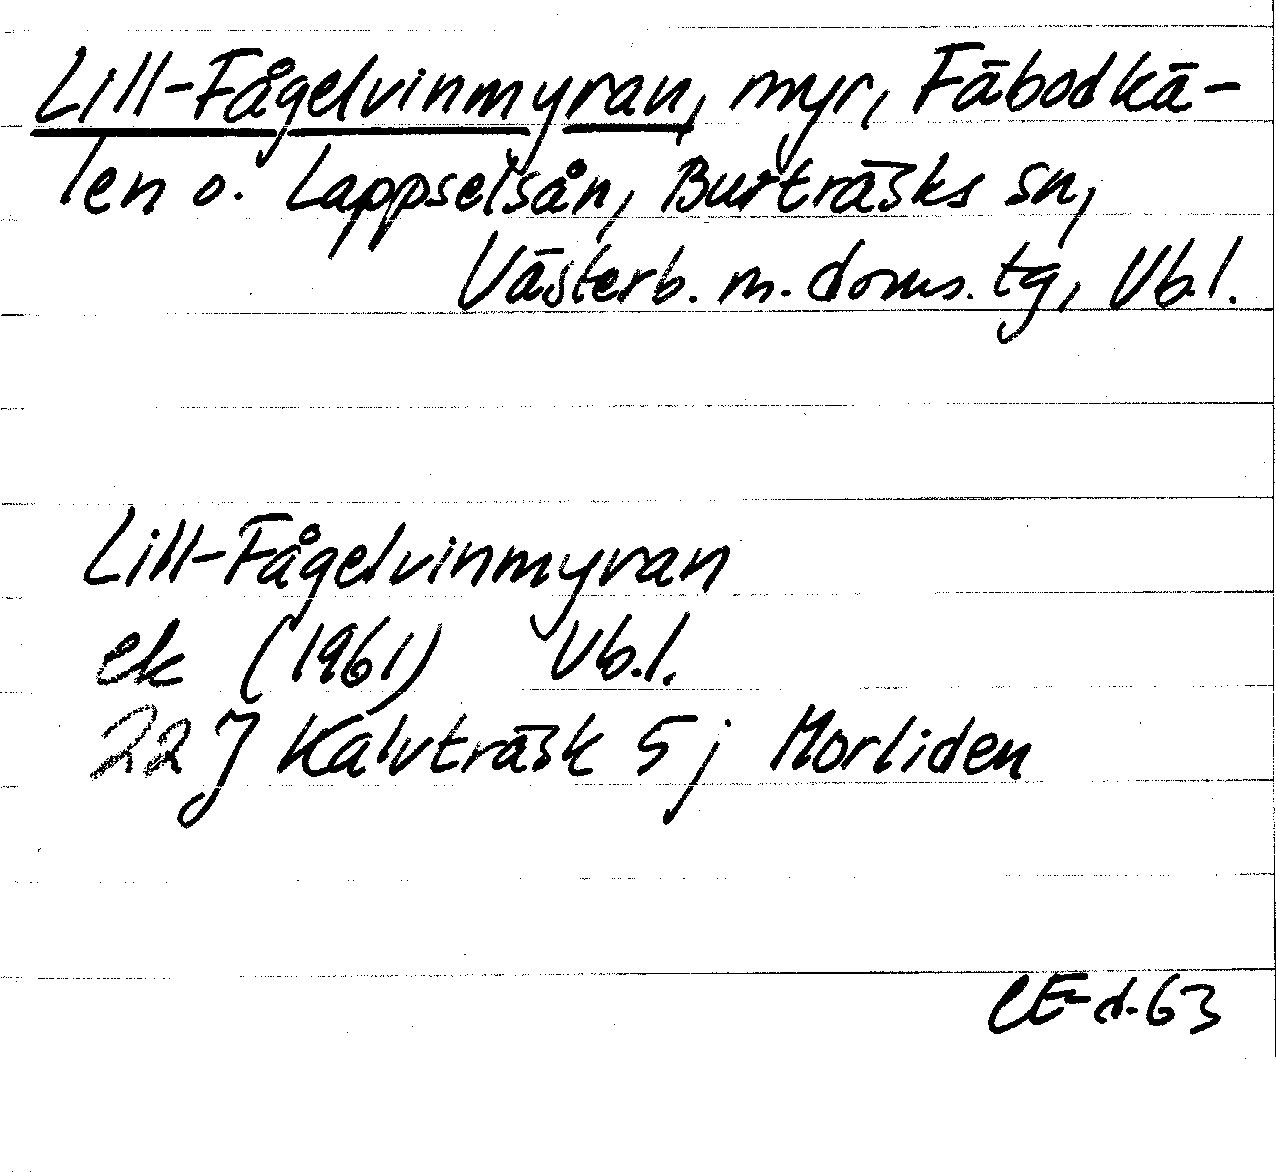 Lill-Fågelvinmyran, myr, Fäbodkä-
len o. Lappselsån, Burträsks sn,
Västerb. m. doms. tg, Vb.l.
Lill-Fågelvinmyran
ek (1961) Vb.l.
22 J Kalvträsk 5 j Morliden
CE-d. 63